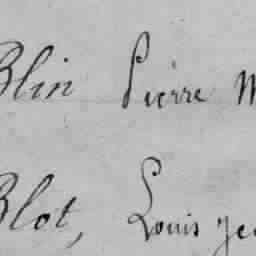 Blin Pierre M
Blot, Louis Je